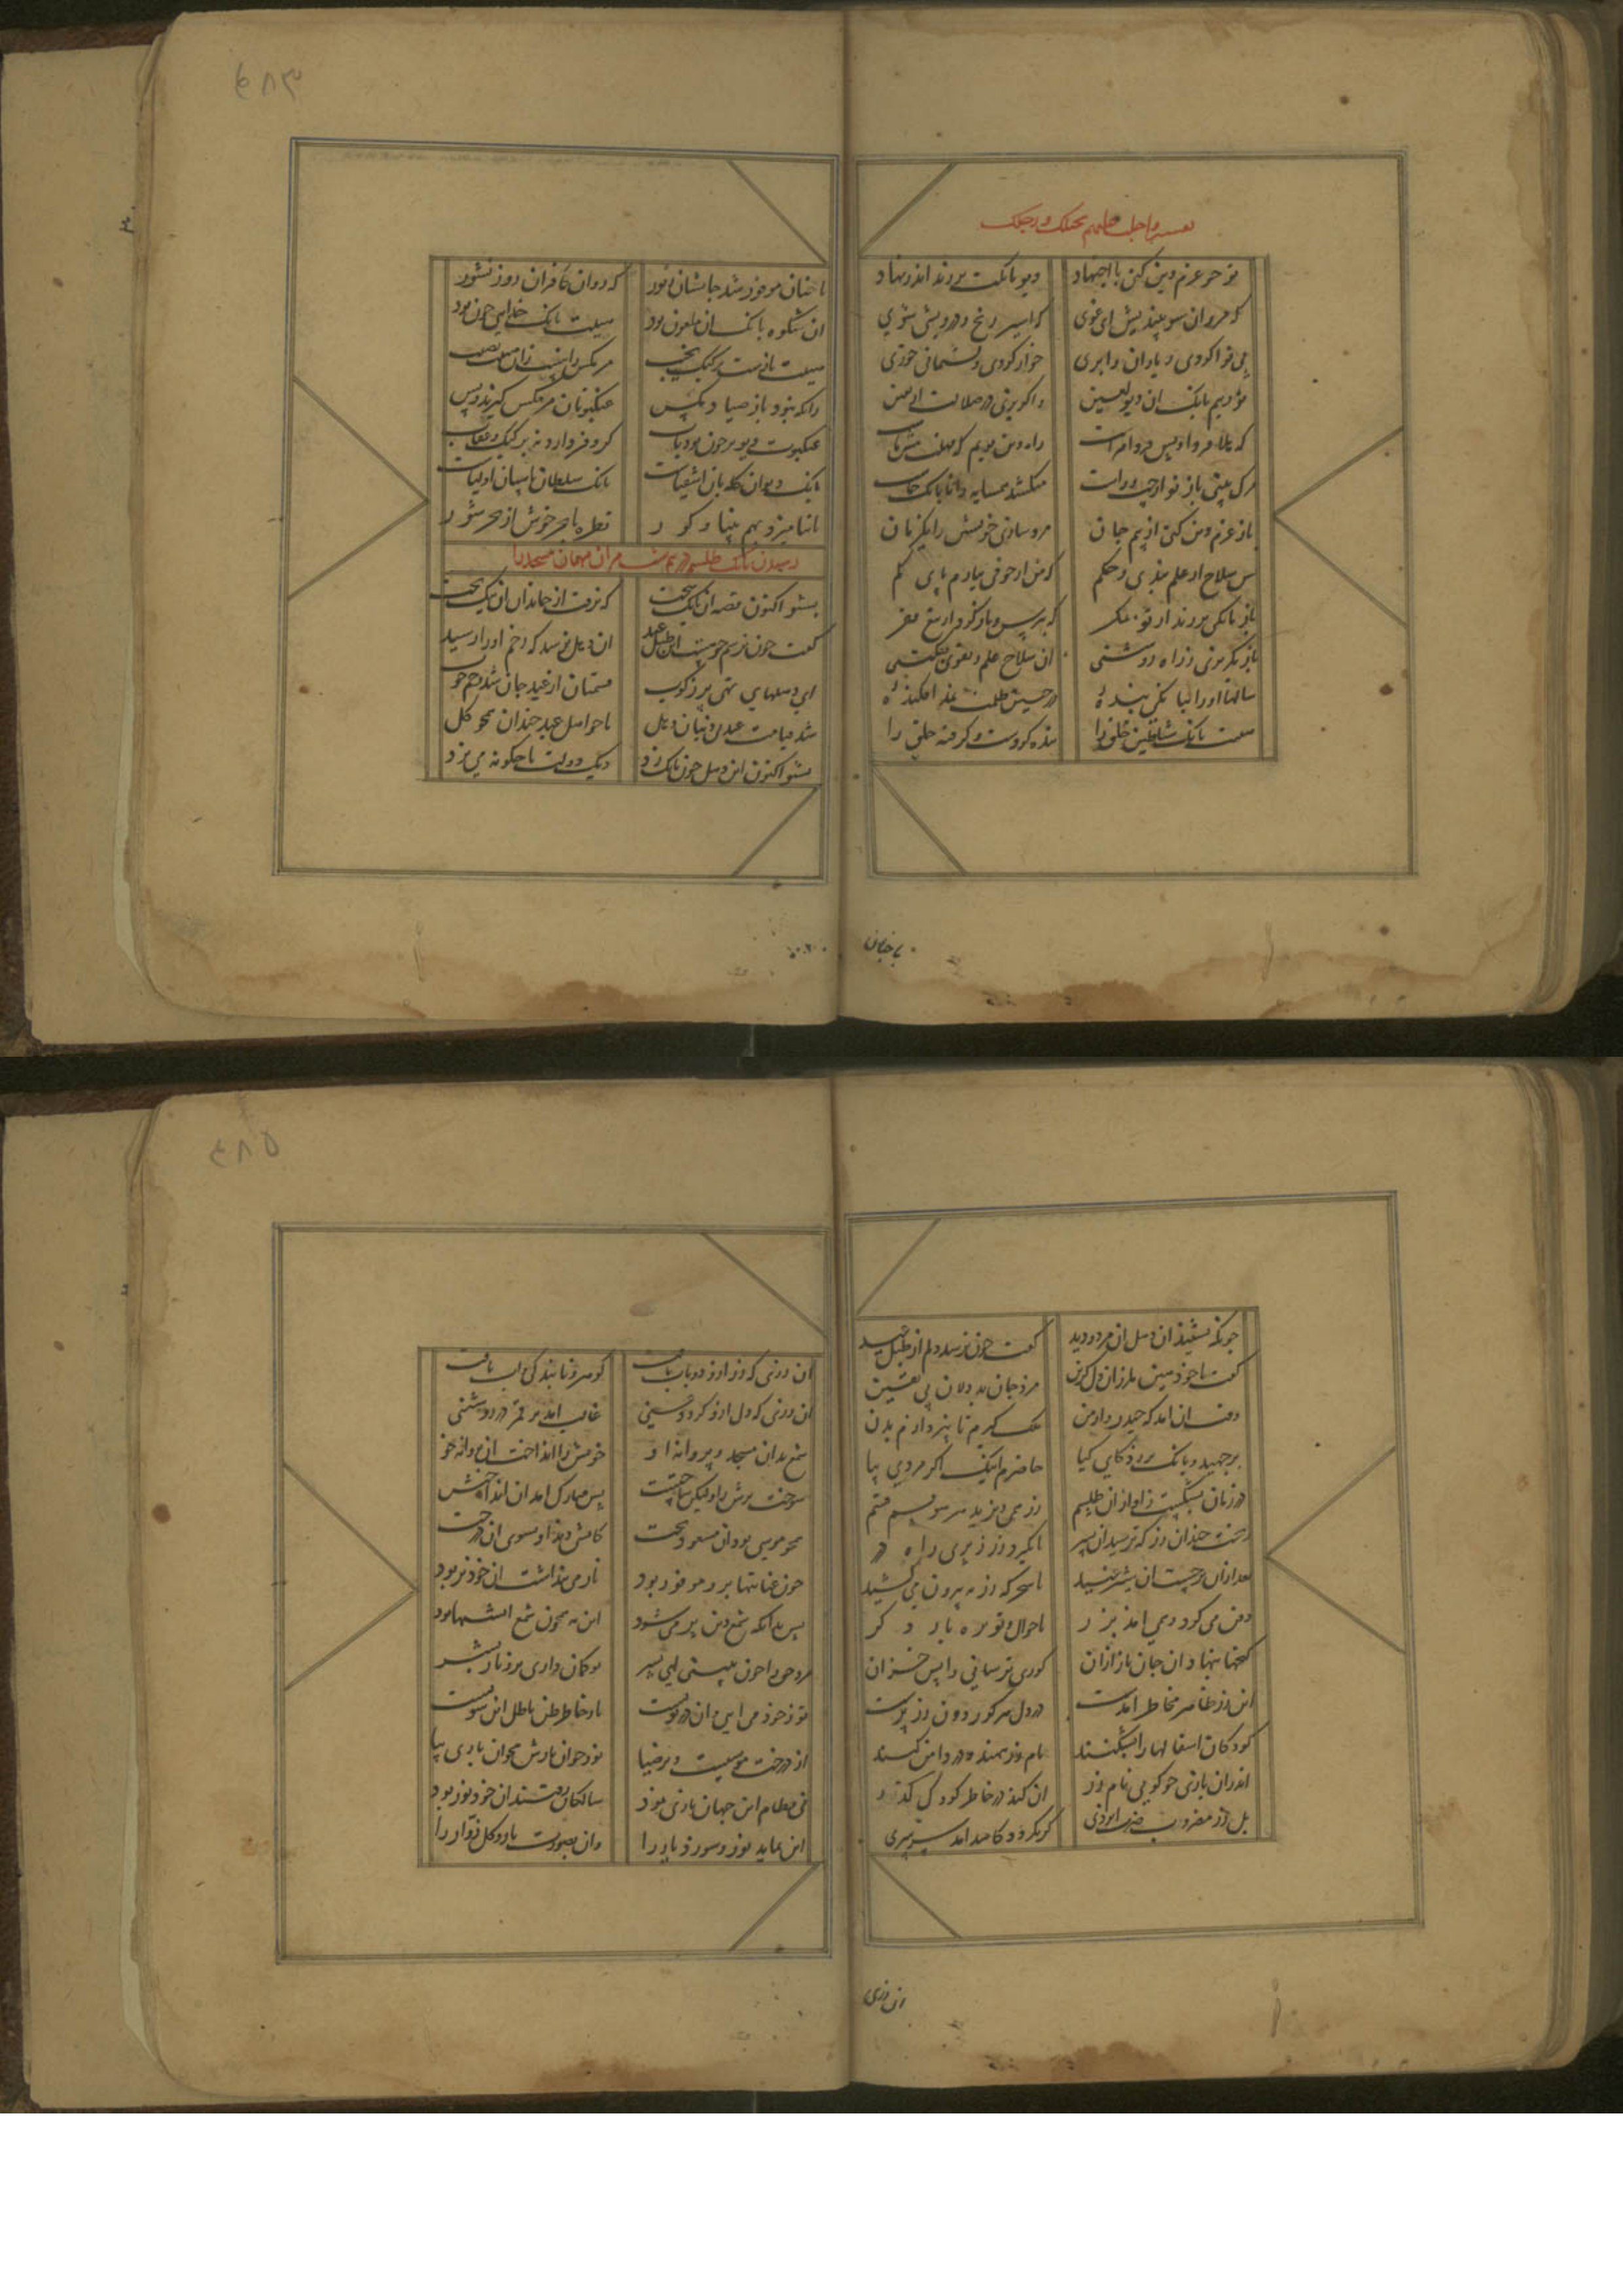 تفسیر واجلب علیهم بخیلک ورجلک
تو چو عزم دین کنی با اجتهاد دیو بانکت برزند اندر نهاد
که مرو زان سو بیندیش ای غوی که اسیر رنج و درویشی شوی
بی نوا کردی ز یاران وابری خوار کردی و پشیمانی خوری
تو ز بیم بانک آن دیو لعین واکریزی در ضلالت از یقین
که هلا فردا و پس فردا مراست راه دین پویم که مهلت پیش ماست
مرک بینی باز کو از چپ و راست میکشد همسایه را تا بانک خاست
باز عزم دین کنی از بیم جان مرد سازی خویشتن را یکزمان
پس سلاح از علم بندی و حکم که من از خوفی نیارم پای کم
باز بانکی برزند بر تو ز مکر که بترس و باز کرد از تیغ فقر
باز بکریزی ز راه روشنی آن سلاح علم و تقوی بفکنی
سالها او را ببانکی بنده ٔ در چنین ظلمت نمد افکنده ٔ
هیبت بانک شیاطین خلق را بند کردست و کرفته حلق را
تا چنان نومید شد جانشان ز نور که روان کافران روز نشور
این شکوه بانک آن ملعون بود هیبت بانک خدایی چون بود
هیبت بازست بر کبک نجیب مر مکس را نیست زان هیبت نصیب
زانکه نبود باز صیاد مکس عنکبوتان مر مکس کیرند و بس
عنکبوت دیو بر چون تو ذباب کر و فر دارد نه بر کبک و عقاب
بانک دیوان کله بان اشقیاست بانک سلطان پاسبان اولیاست
تا نیامیزد بهم بینا و کور قطره از بحر خوش از بحر شور
رسیدن بانک طلسم در نیم شب مر آن مهمان مسجد را
بشنو اکنون قصه آن بانک سخت که نرفت از جا بدان آن نیکبخت
کفت چون ترسم چو هست این طبل عید تا دهل ترسد که زخم او را رسید
ای دهلهای تهی پر ز کوب قسمتان از عید جان شد زخم چوب
شد قیامت عید و بی‌دینان دهل ما چو اهل عید خندان همچو کل
بشنو اکنون این دهل چون بانک زد دیک دولت با چکونه می پزد
تا چنان
چونکه بشنید آن دهل آن مرد دید کفت چون ترسد دلم از طبل عید
کفت با خود هین ملرزان دل کزین مرد جان بد دلان بی یقین
وقت آن آمد که حیدر وار من ملک کیرم یا بپردازم بدن
برجهید و بانک برزد کای کیا حاضرم اینک اکر مردی بیا
در زمان بشکست ز آواز آن طلسم زر همی ریزید هر سو قسم قسم
ریخت چندان زر که ترسید آن پسر تا نکیرد زر ز پری راه در
بعد ازان برخاست آن شیر عتید تا سحرکه زر به بیرون می کشید
دفن می کرد و همی آمد بزر با جوال و توبره بار دکر
کنجها بنهاد آن جان باز ازان کوری ترسانی واپس خزان
این زر ظاهر بخاطر آمدست در دل هر کور دون زر پرست
کودکان اسفالها را بشکنند نام زر بنهند و در دامن کنند
اندران بازی چو کویی نام زر آن کند در خاطر کودک کذر
بل زر مضروب ضرب ایزدی کو نکردد کاسد آمد سرمدی
آن زری که زر ازو زو تاب یافت کوهر و تابندکی و آب یافت
آن زری که دل ازو کردد غنی غالب آمد بر قمر در روشنی
شمع بد آن مسجد و پروانه او خویش را انداخت آن پروانه خو
سوخت پرش را ولیکن ساختش بس مبارک آمد آن انداختش
همچو موسی بود آن مسعود بخت کاتشی دید او بسوی آن درخت
چون عنایتها برو موفور بود نار می پنداشت آن خود نور بود
پس بدانکه شمع دین بر می شود این نه همچون شمع آتشها بود
مرد حق را چون ببینی ای پسر تو کمان داری برو نار بشر
تو ز خود می آیی و آن در توست نار و خار ظن باطل این سوست
او درخت موسیست و پر ضیا نور خوان نارش مخوان باری بیا
نی فطام این جهان ناری نمود سالکان رفتند آن خود نور بود
این نماید نور و سوزد یار را وان بصورت نار و کل زوار را
آن زری